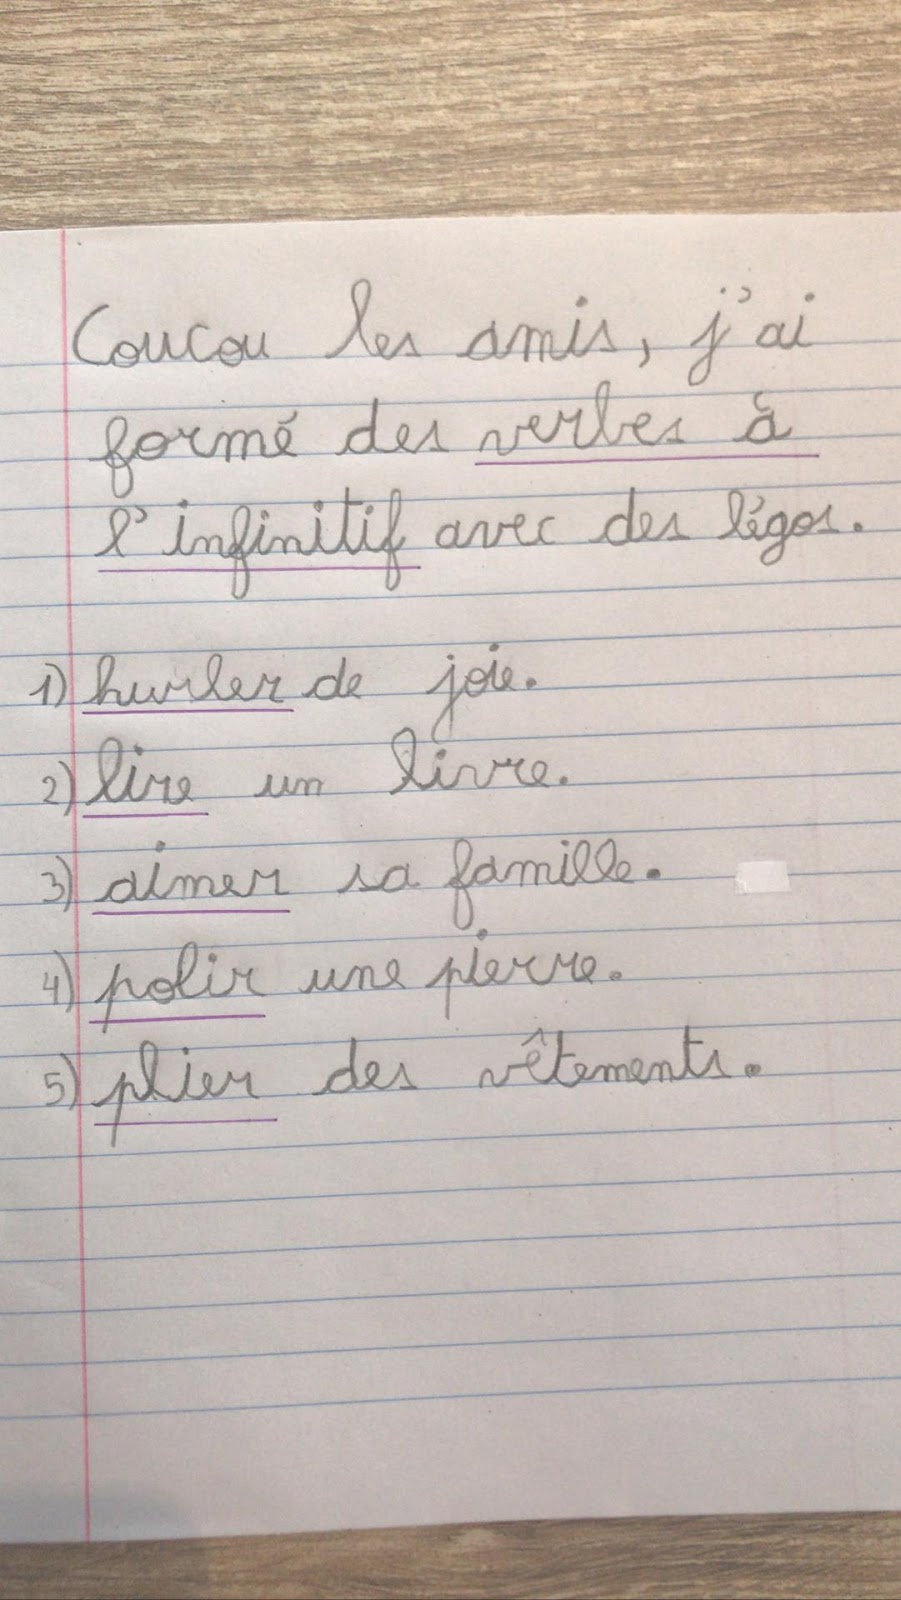 Coucou les amis, j'ai
formé des verbes à
l'infinitif avec des légos.
1) hurler de joie.
2) lire un livre.
3) aimer sa famille.
4) polir une pierre.
5) plier des vêtements.